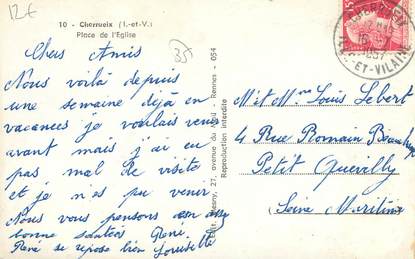 12€
10 - Cherrueix (I.-et-V.)
Place de l'Eglise
35
Chers Amis
Nous voilà depuis
une semaine déjà en
vacances je voulais venir
avant mais j'ai eu
pas mal de visites
et je n'es pu venir
Nous vous pensons
bonne santés René
René se repose bien
Edit. Mesny, 27, avenue du Mail - Rennes - 054
Reproduction interdite
ILLE-ET-VILAINE
M et Mme Louis Lebert
4 Rue Romain
Petit Quevilly
Seine Maritime